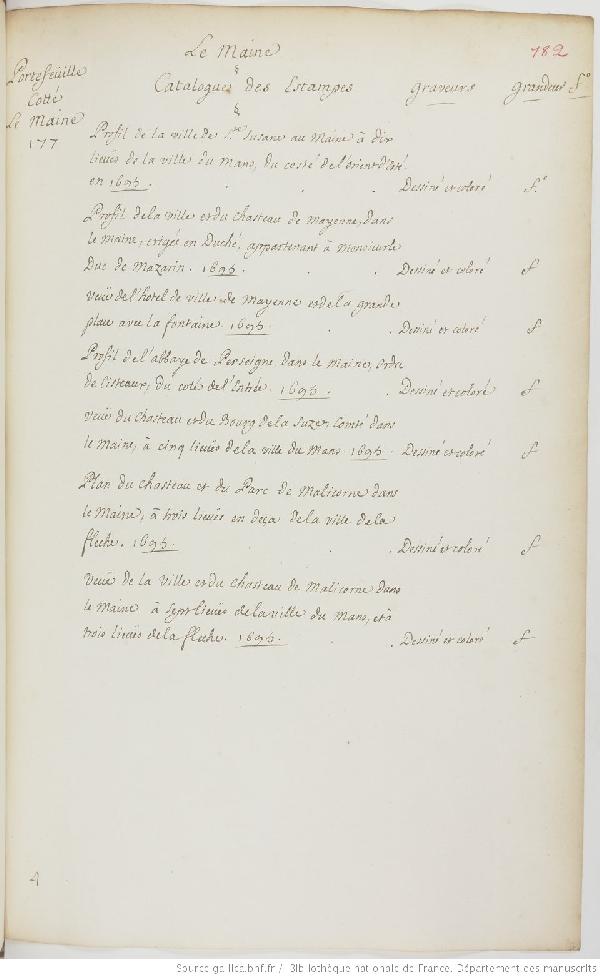 Le Maine
182
Portefeüille
Cotté
Le Maine
177
Catalogue des Estampes graveurs grandeur fº
Profil de la ville de Ste Susane au Maine à dix
lieües de la ville du Mans, du costé de l'orient d'Eté
en 1695. Dessiné et coloré fº
Profil de la ville et du Chasteau de Mayenne, dans
le Maine, erigée en Duché, appartenant à Monsieur le
Duc de Mazarin. 1695. Dessiné et coloré f
Veüe de l'hotel de ville de Mayenne et de la grande
place avec la fontaine 1695. Dessiné et coloré f
Profil de l'abbaye de Perseigne, dans le Maine, Ordre
de Cisteaux, du coté de l'Entrée. 1695. Dessiné et coloré f
Veüe du Chasteau et du Bourg de la Suze, Comté dans
le Maine, à cinq lieües de la ville du Mans 1695. Dessiné et coloré f
Plan du Chasteau et du Parc de Malicorne dans
le Maine, à trois lieües en deça de la ville de la
fleche. 1695. Dessiné et coloré f
Veüe de la Ville et du Chasteau de Malicorne dans
le Maine à sept lieües de la ville du Mans, et à
trois lieües de la fleche. 1695. Dessiné et coloré f
4
Source gallica.bnf.fr / Bibliothèque nationale de France. Département des manuscrits